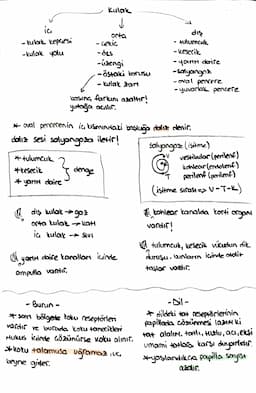 kulak
iç
- kulak kepçesi
- kulak yolu
orta
- çekiç
- örs
- üzengi
- östaki borusu
- kulak zarı
basınç farkını azaltır!
yutağa açılır.
dış
- tulumcuk
- kesecik
- yarım daire
- salyangoz
- oval pencere
- yuvarlak pencere
* oval pencerenin iç kısmındaki boşluğa dalız denir.
dalız sesi salyangoza iletir!
* tulumcuk
* kesecik
* yarım daire
denge
salyangoz (işitme)
vestibular (perilenf)
kohlear (endolenf)
timpanik (perilenf)
(işitme sırası => V-T-K)
dış kulak → gaz
orta kulak → katı
iç kulak → sıvı
kohlear kanalda korti organı
vardır!
yarım daire kanalları içinde
ampulla vardır.
tulumcuk, kesecik vücudun dik
duruşu. bunların içinde otolit
taşlar vardır.
- Burun -
* sarı bölgede koku reseptörleri
vardır ve burada koku tanecikleri
mukus içinde çözünürse koku alınır.
* koku talamusa uğramaz
beyne gider.
- Dil -
* dildeki tat reseptörlerinin
papillada çözünmesi lazım ki
tat alalım. tatlı, tuzlu, acı, ekşi
umami tatlara karşı duyarlıdır.
* yaşlandıkça papilla sayısı
azalır.